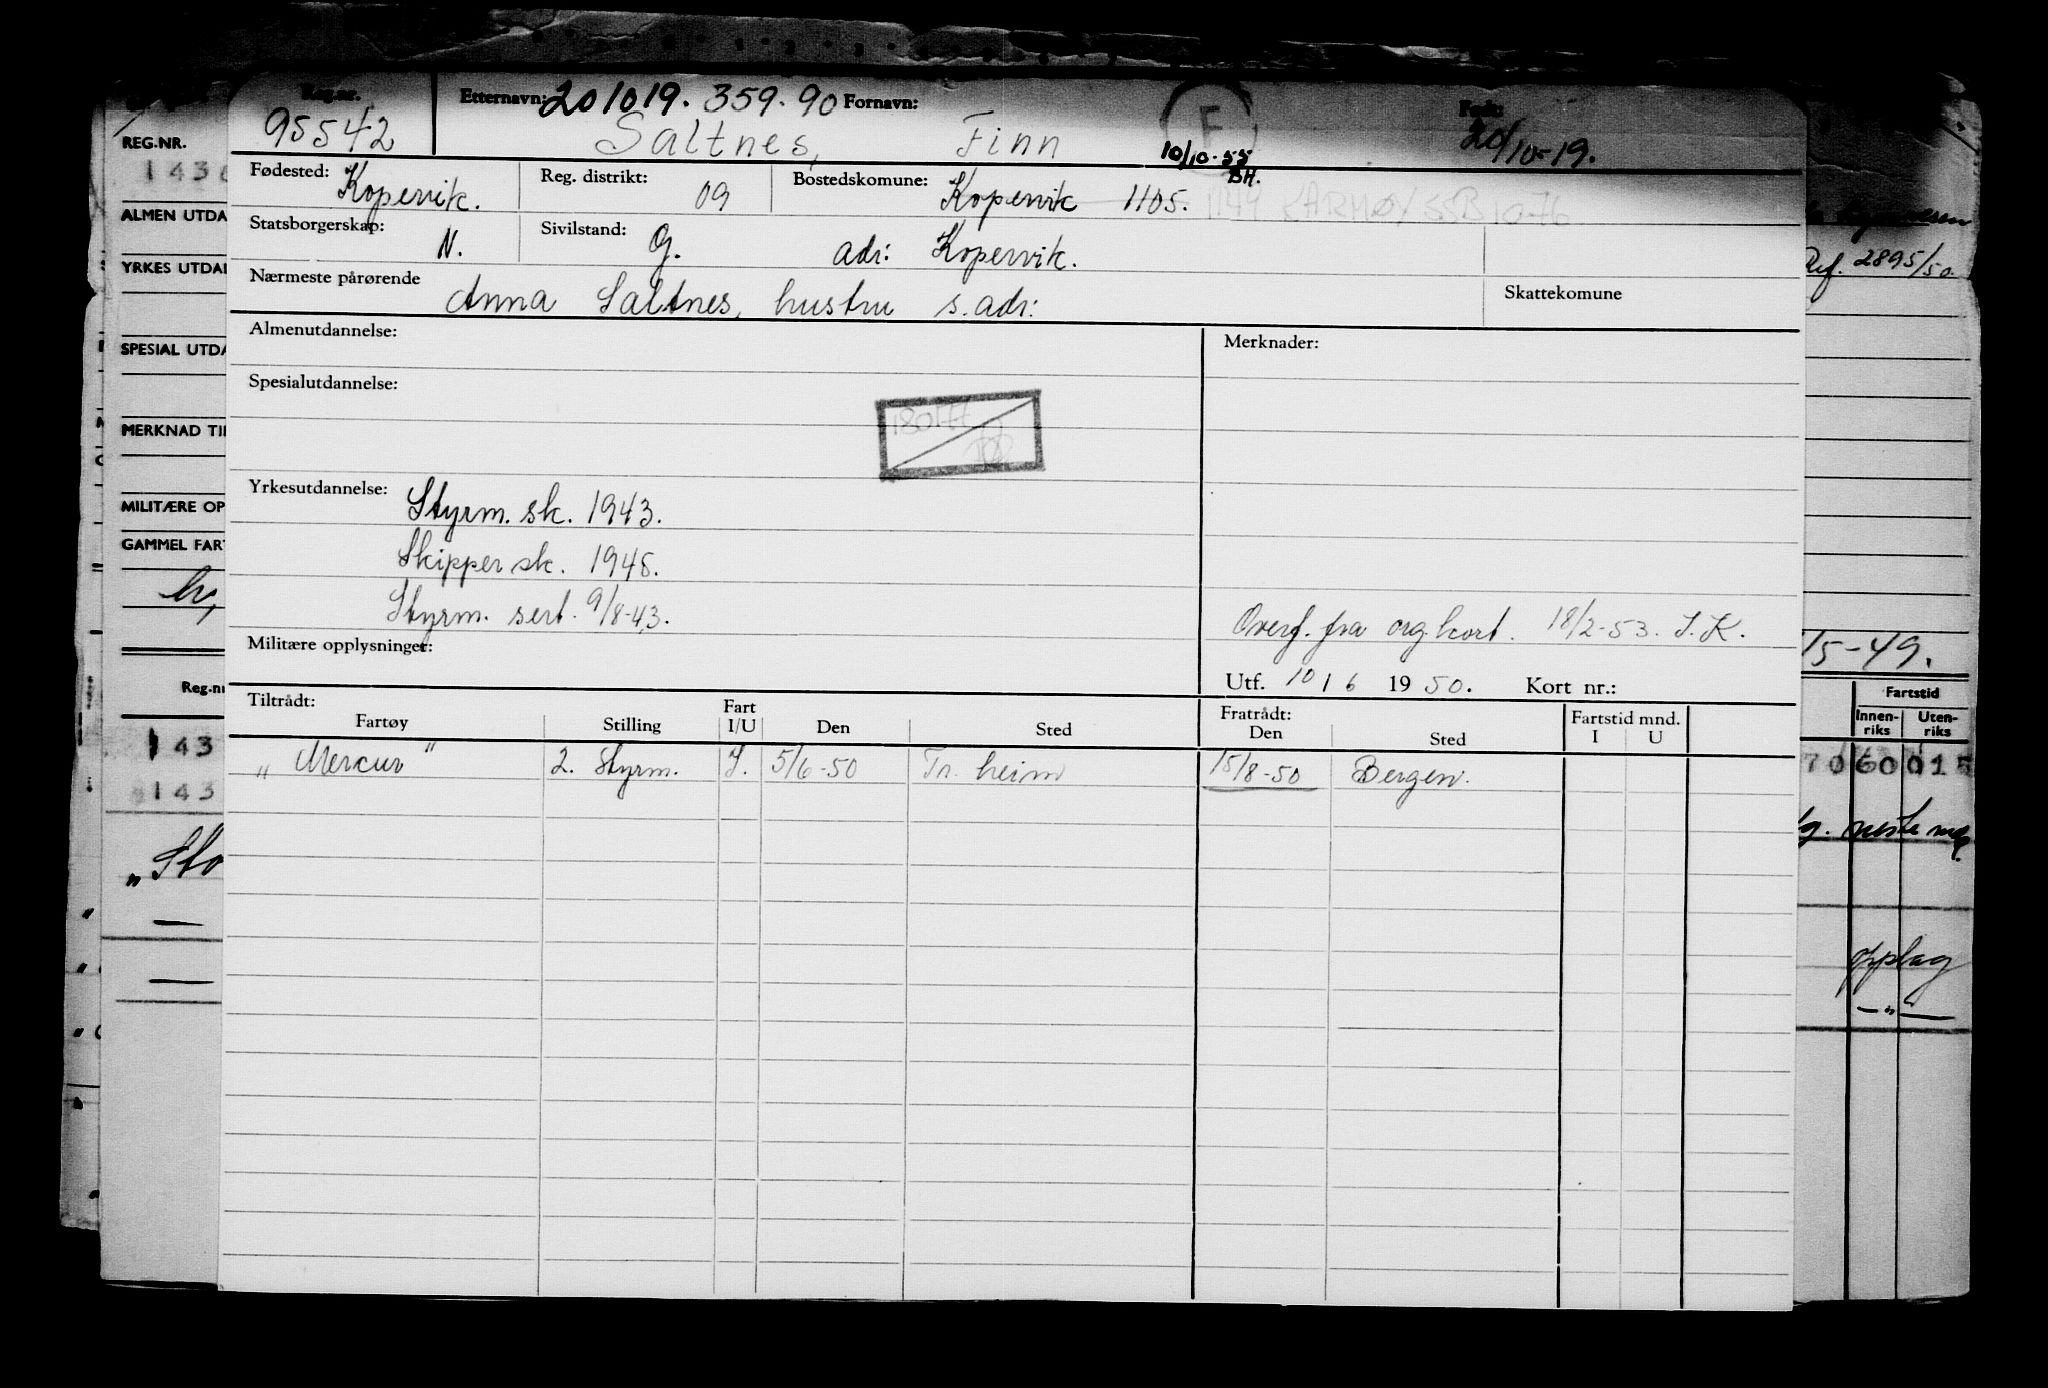 Reg.nr. Etternavn: 201019. 359.90 Fornavn: F Født:
95542 Saltnes, Finn 10/10-55 BH. 20/10-19.
Fødested: Kopervik. Reg. distrikt: 09 Bostedskomune: Kopervik 1105. 1149 KARMØY SSB 10-76
Statsborgerskap: N. Sivilstand: G. adr: Kopervik.
Nærmeste pårørende Anna Saltnes, hustru s. adr: Skattekomune
Almenutdannelse: Merknader:
Spesialutdannelse:
180177
Yrkesutdannelse: Styrm. sk. 1943.
Skipper sk. 1948.
Styrm. sert. 9/8-43. Overf. fra org.kort. 18/2-53. S.K.
Militære opplysninger:
Utf. 10/6 1950. Kort nr.:
Tiltrådt: Fratrådt:
Fartøy Stilling Fart I/U Den Sted Den Sted Fartstid mnd. I U
"Mercur" 2. Styrm. I. 5/6-50 Tr. heim 15/8-50 Bergen.
REG.NR.
143
ALMEN UTDA
YRKES UTDA
SPESIAL UTDA
MERKNAD TIL
MILITÆRE OP
GAMMEL FAR
Reg.nr
143
143
"Sto
Ref. 2895/50
15-49.
Fartstid
Innen-riks Uten-riks
70 60 015
neste
opplag
—"—